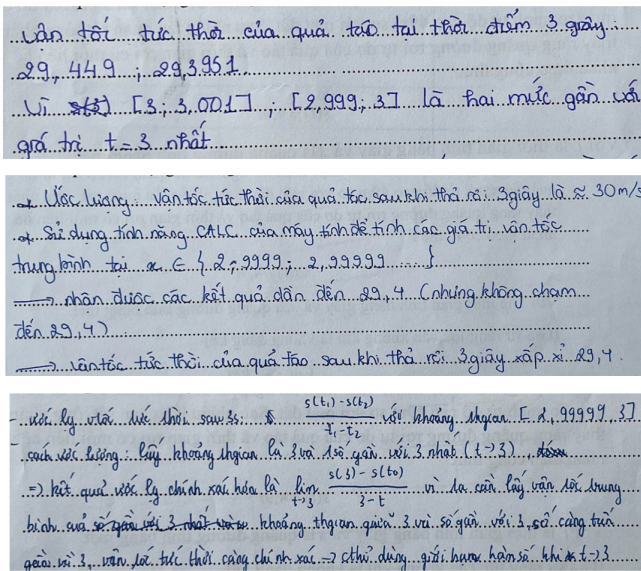 vận tốc tức thời của quả táo tại thời điểm 3 giây:
29,449 ; 29,3951
Vì [3; 3,001] ; [2,999; 3] là hai mức gần với
giá trị t = 3 nhất
* Ước lượng: vận tốc tức thời của quả táo sau khi thả rơi 3 giây là ≈ 30 m/s
* Sử dụng tính năng CALC của máy tính để tính các giá trị vận tốc
trung bình tại x ∈ { 2,9999; 2,99999 ... }
→ nhận được các kết quả dần đến 29,4 (nhưng không chạm
đến 29,4)
→ vận tốc tức thời của quả táo sau khi thả rơi 3 giây xấp xỉ 29,4.
- ước lg vtốc tức thời sau 3s: \frac{s(t_1) - s(t_2)}{t_1 - t_2} với khoảng thgian [2,99999 3]
- cách ước lượng: lấy khoảng thgian là 3 và 1 số gần với 3 nhất (t→3),
=> kết quả ước lg chính xác hơn là \lim_{t→3} \frac{s(3) - s(t_0)}{3 - t} vì ta cần lấy vận tốc trung
bình của khoảng thgian giữa 3 và số gần với 3, số càng tiến
gần về 3, vận tốc tức thời càng chính xác → cthể dùng giới hạn hàm số khi t→3